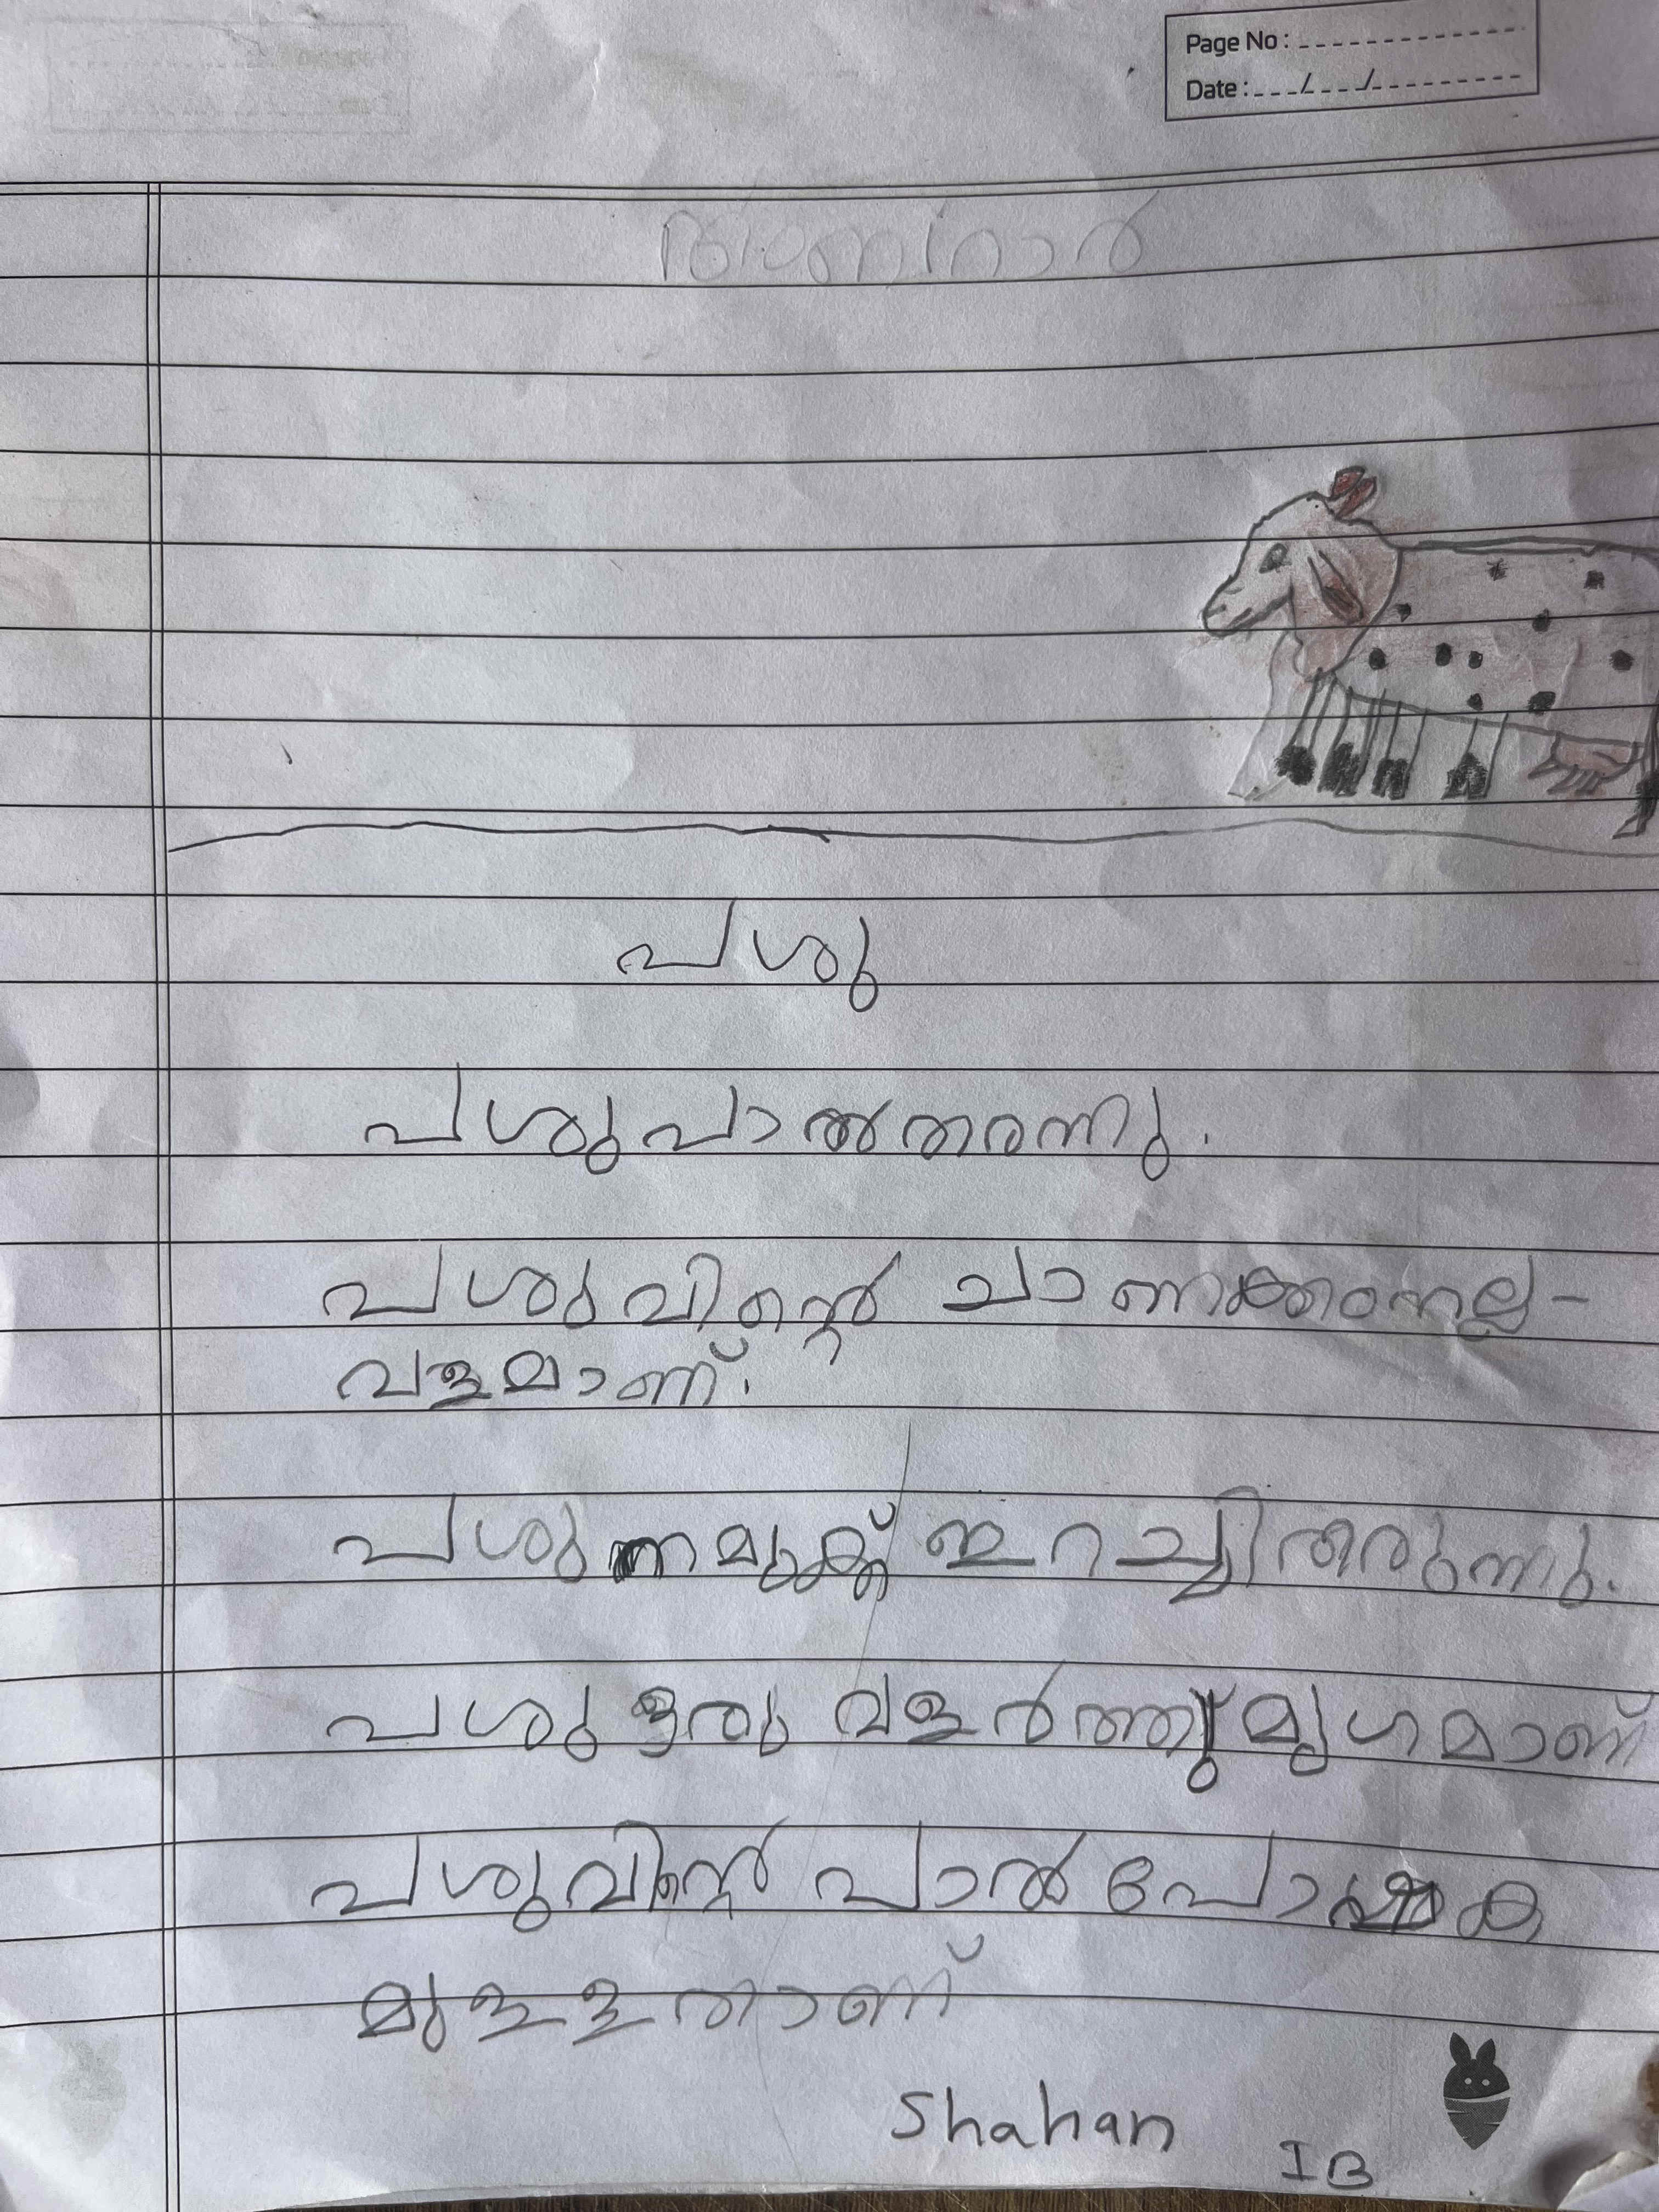 Page No :
Date :
പശു
പശു പാൽ തരന്നു.
പശുവിന്റെ ചാണകം നല്ല -
വളമാണ്.
പശു നമുക്ക് ഇറച്ചി തരുന്നു.
പശു ഒരു വളർത്തു മൃഗമാണ്
പശുവിന്റെ പാൽ പോഷക
മുള്ളതാണ്
Shahan
I B